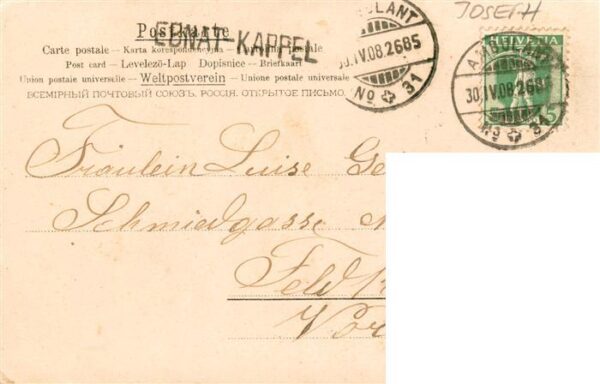 JOSEPH
Postkarte
EBNAT-KAPPEL
Carte postale – Karta korespondencyjna – Cartolina postale
Post card – Levelező-Lap Dopisnice – Briefkaart
Union postale universelle – Weltpostverein – Unione postale universale
ВСЕМІРНЫЙ ПОЧТОВЫЙ СОЮЗЪ. РОССІЯ. ОТКРЫТОЕ ПИСЬМО.
30.IV.08.2685
No 31
HELVETIA
5
30.IV.08.2685
No 31
Fräulein Luise Ge
Schmiedgasse
Feld
Vor